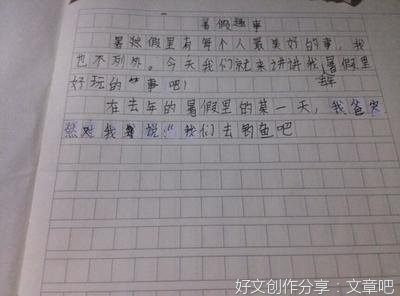 暑假趣事
暑然假里有每个人最美好的事,我
也不列外。今天我们就来讲讲我暑假里
去年
好玩的事吧!
在去年的暑假里的某一天,我爸突
然对我说:“我们去钓鱼吧
好文创作分享:文章吧